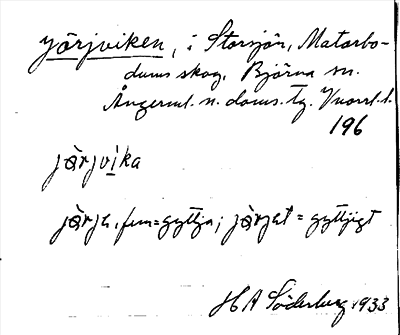 Yörjviken, i Storsjön, Matarbo-
dums skog, Björna sn.
Ångerml. n. doms. tg. Vuorl. l.
196
jòrjvika
jòrja, fem = gyttja; jòrjat = gyttjigt
HA Söderberg 1933